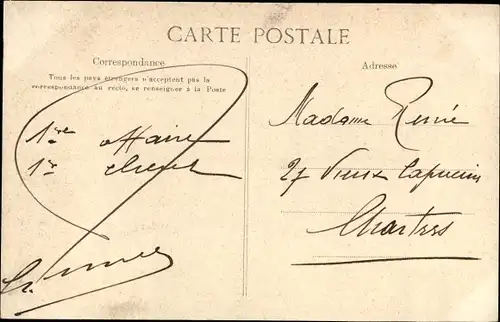 CARTE POSTALE
Correspondance
Tous les pays étrangers n'acceptent pas la
correspondance au recto, se renseigner à la Poste
1re affaire
1r client
Adresse
Madame René
27 Vieux Capucins
Chartres